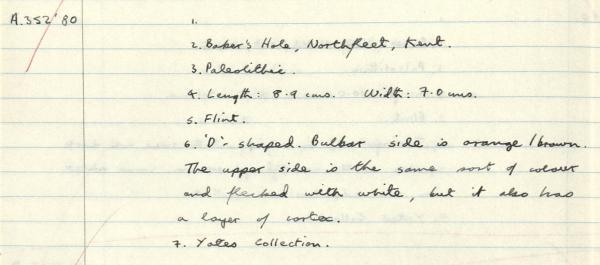 A.352'80
1.
2. Baker's Hole, Northfleet, Kent.
3. Paleolithic.
4. Length: 8.9 cms. Width: 7.0 cms.
5. Flint.
6. 'D'- shaped. Bulbar side is orange/brown.
The upper side is the same sort of colour
and flecked with white, but it also has
a layer of cortex.
7. Yates Collection.